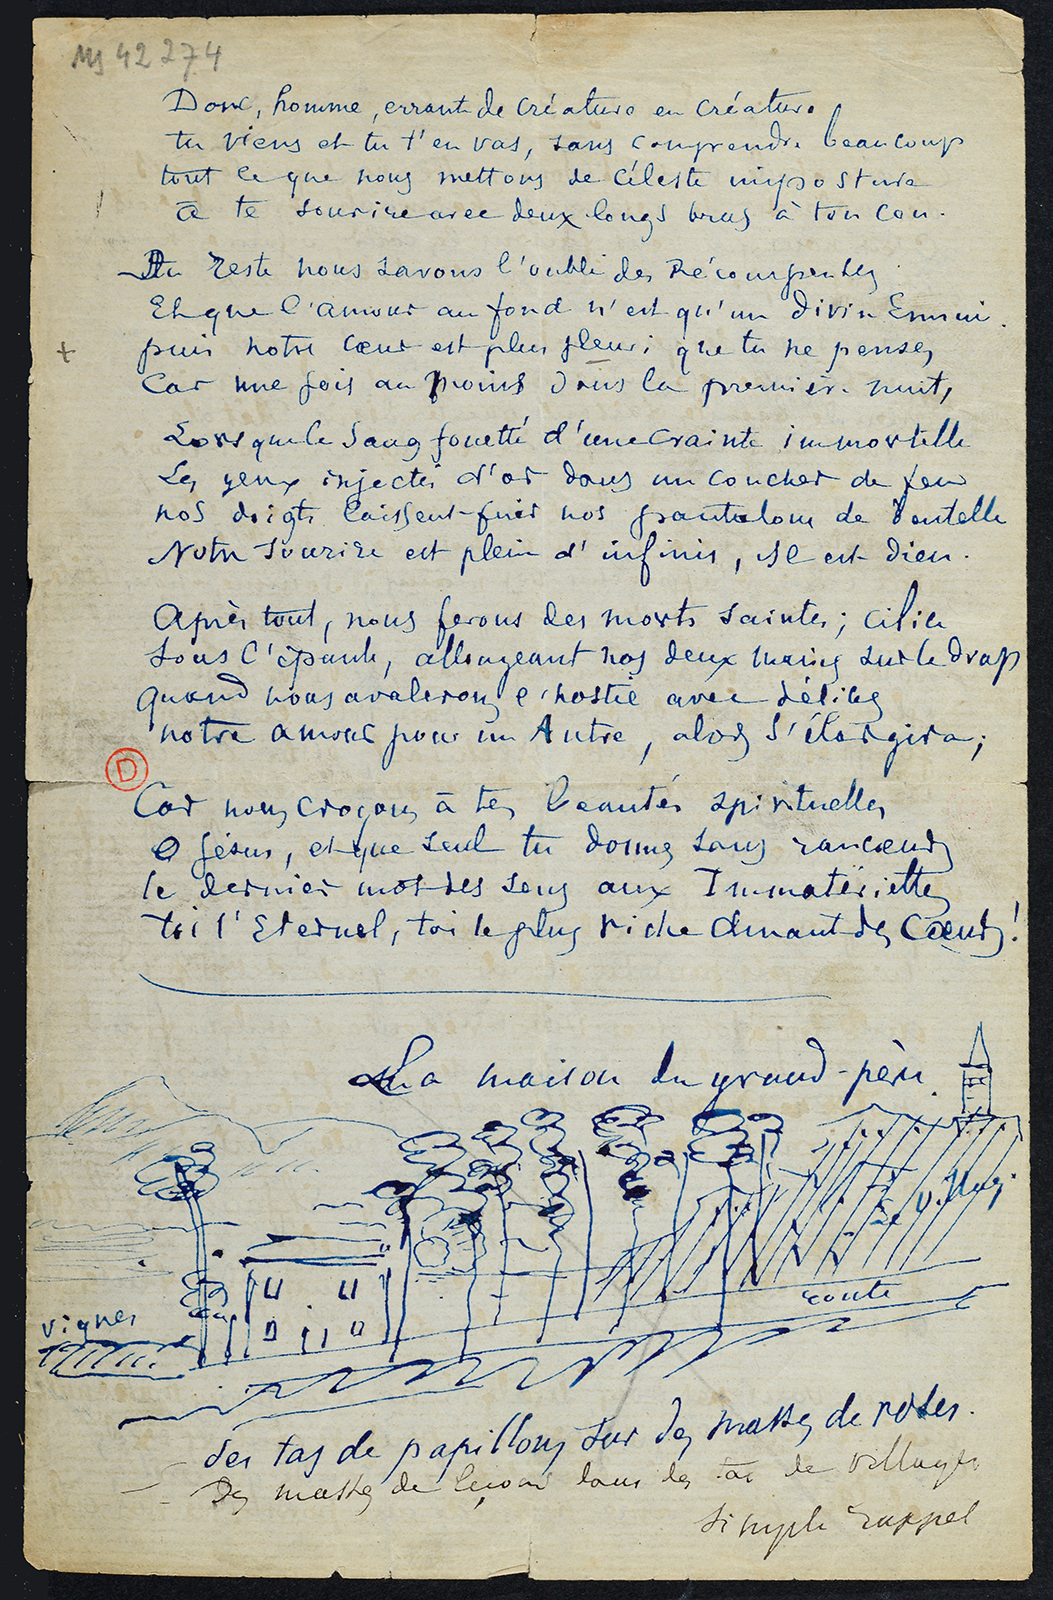 Ms 42 274
Donc, homme, errant de créature en créature
tu viens et tu t'en vas, sans comprendre beaucoup
tout ce que nous mettons de céleste imposture
à te sourire avec deux longs bras à ton cou.
Du reste nous savons l'oubli des Récompenses
Et que l'amour au fond n'est qu'un divin Ennui.
puis notre cœur est plus fleuri que tu ne penses
Car une fois au moins dans la première nuit,
Lorsque le sang fouetté d'une crainte immortelle
Les yeux injectés d'or dans un coucher de feu
nos doigts laissent fuir nos pantalons de dentelle
Notre sourire est plein d'infinis, il est dieu.
Après tout, nous ferons des morts saintes; cilice
sous l'épaule, allongeant nos deux mains sur le drap
quand nous avalerons l'hostie avec délices
notre amour pour un Autre, alors s'élargira;
D
Car nous croyons à tes beautés spirituelles
O Jésus, et que seul tu donnes sans rancœurs
le dernier mot des sens aux Immatérielles
toi l'Eternel, toi le plus riche Amant des Cœurs!
La maison du grand-père
le village
route
vignes
des tas de papillons sur des masses de roses.
Des masses de leçons dans des tas de villages
simple rappel